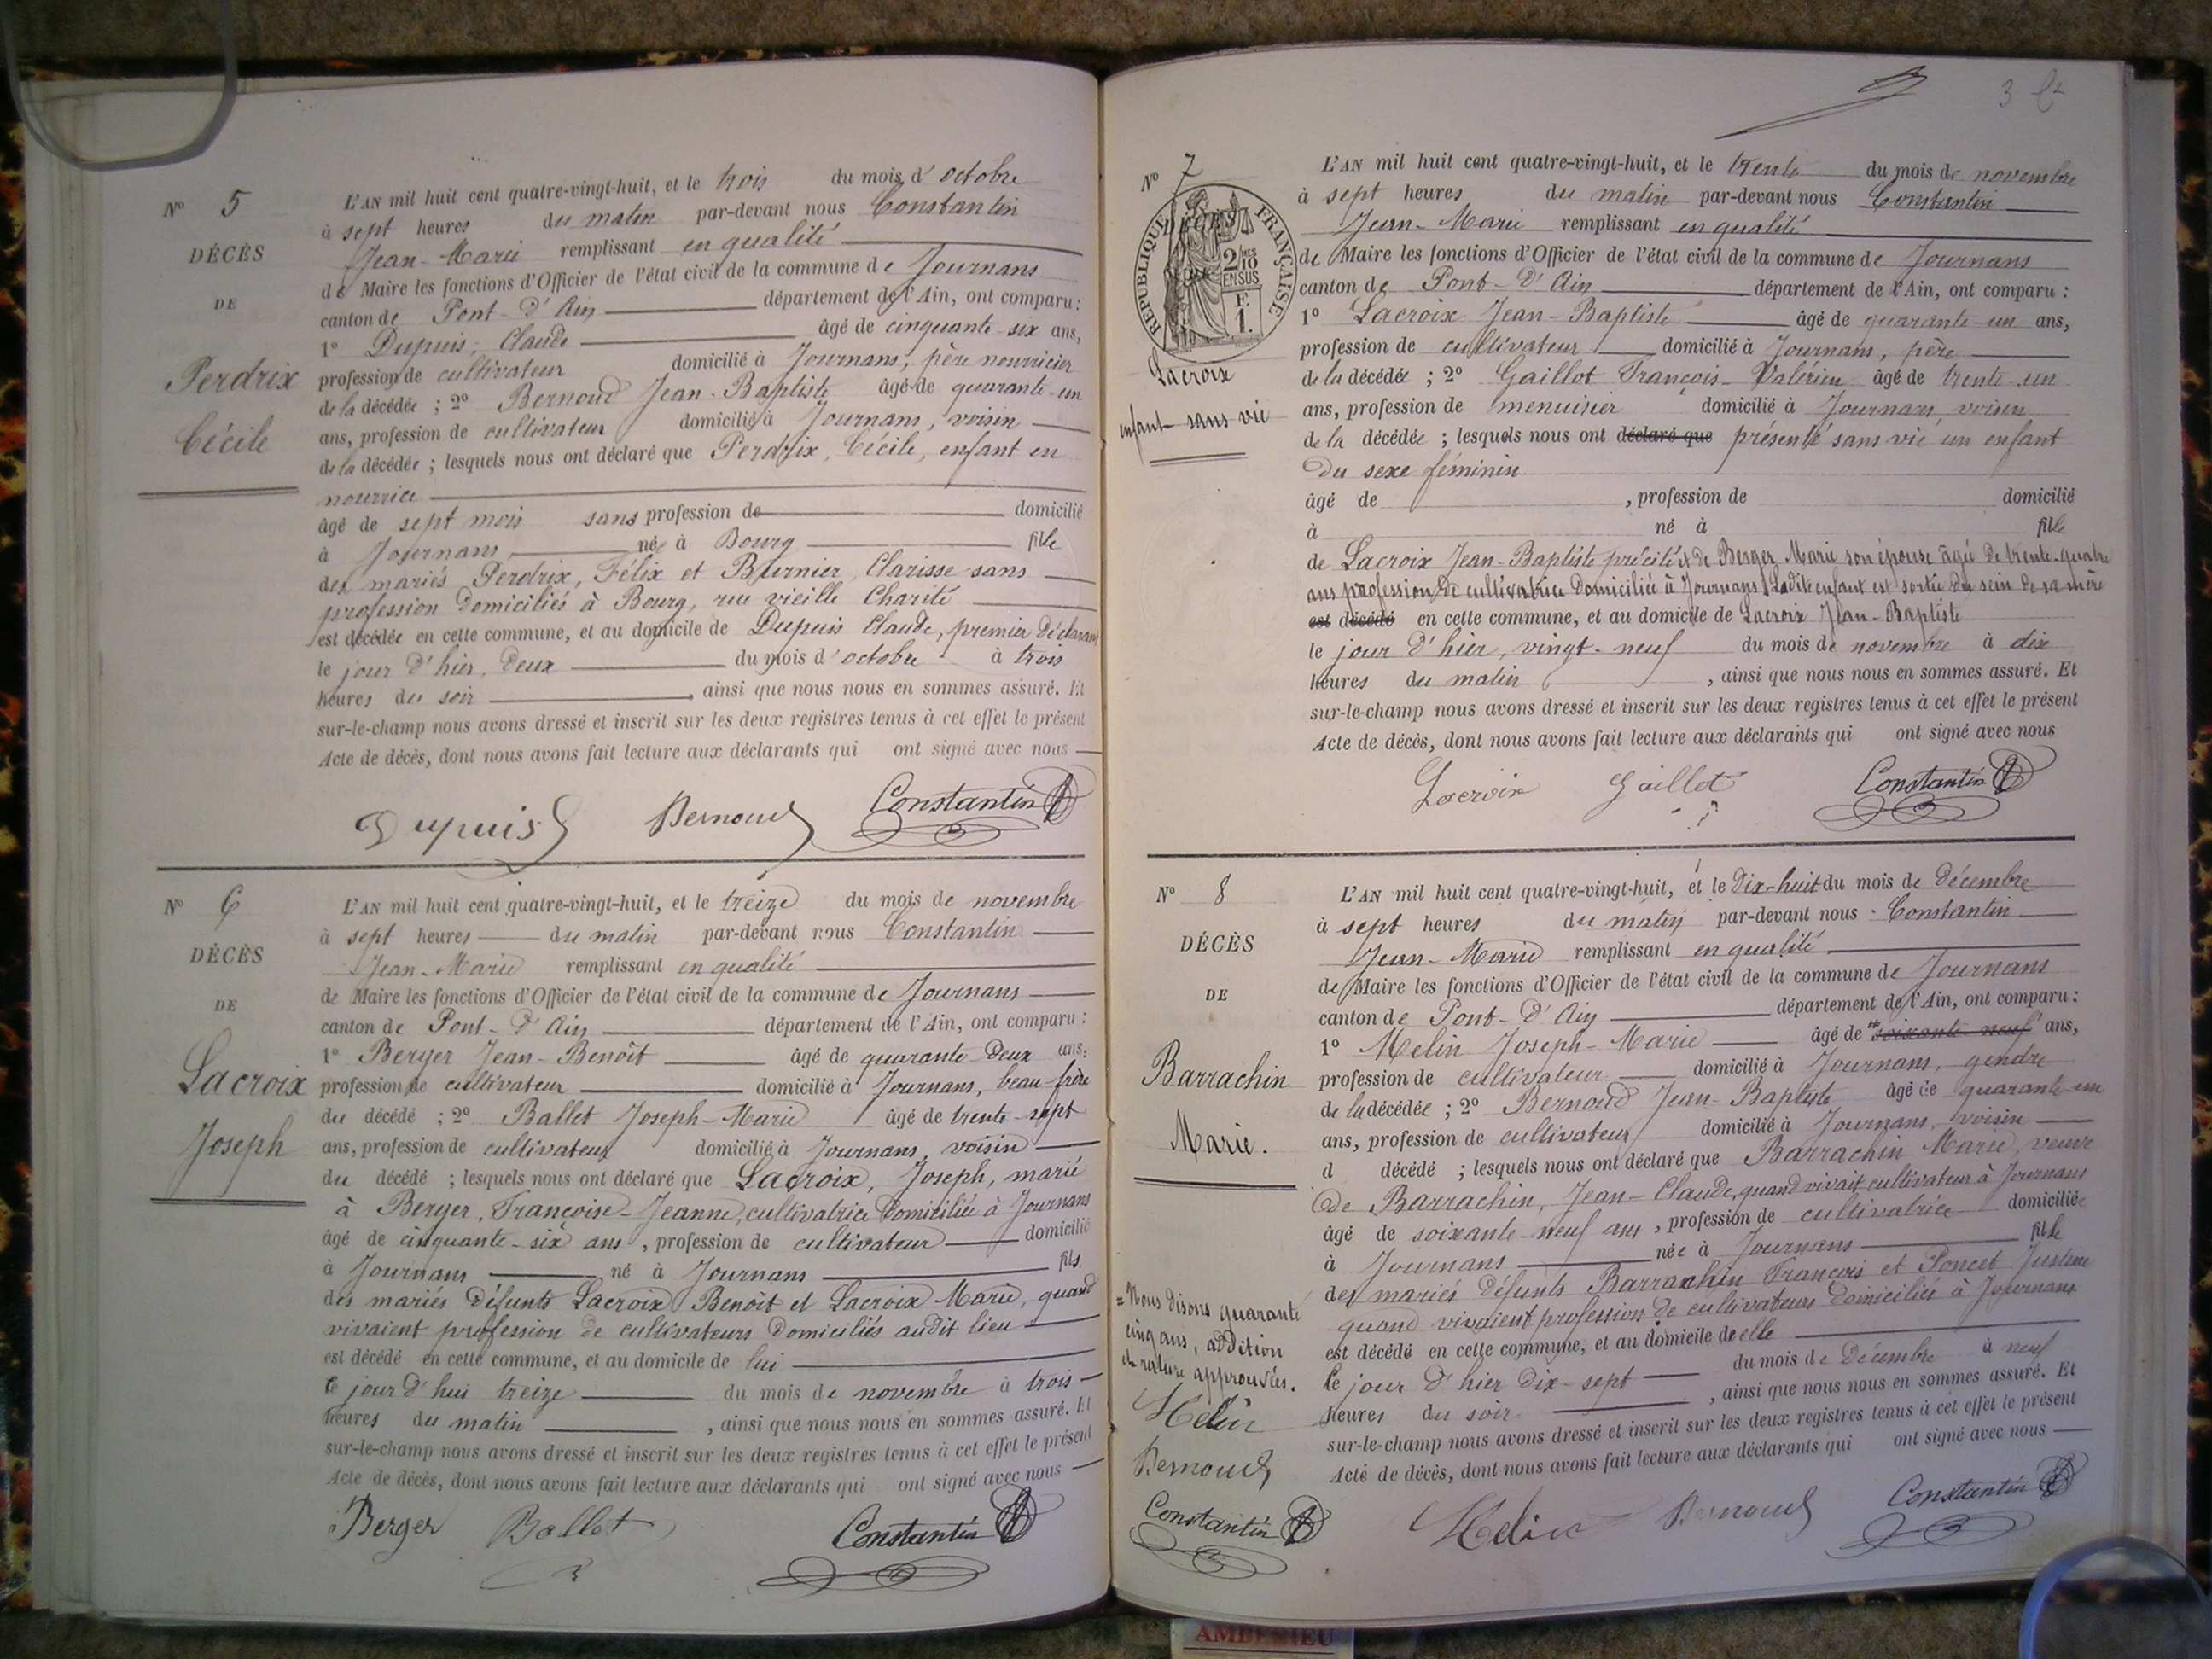 N° 5
DÉCÈS
DE
Perdrix
Cécile
L'AN mil huit cent quatre-vingt-huit, et le trois du mois d'octobre
à sept heures du matin par-devant nous Constantin
Jean-Marie remplissant en qualité
de Maire les fonctions d'Officier de l'état civil de la commune de Journans
canton de Pont-d'Ain département de l'Ain, ont comparu :
1° Dupuis, Claude âgé de cinquante-six ans,
profession de cultivateur domicilié à Journans, père nourricier
de la décédée ; 2° Bernoud Jean-Baptiste âgé de quarante-un
ans, profession de cultivateur domicilié à Journans, voisin
de la décédée ; lesquels nous ont déclaré que Perdrix, Cécile, enfant en
nourrice
âgé de sept mois sans profession de domicilié
à Journans née à Bourg fille
des mariés Perdrix, Félix et Burnier Clarisse sans
profession domiciliés à Bourg, rue vieille Charité
est décédée en cette commune, et au domicile de Dupuis Claude, premier déclarant
le jour d'hier, deux du mois d'octobre à trois
heures du soir, ainsi que nous nous en sommes assuré. Et
sur-le-champ nous avons dressé et inscrit sur les deux registres tenus à cet effet le présent
Acte de décès, dont nous avons fait lecture aux déclarants qui ont signé avec nous
Dupuis Bernoud Constantin
N° 6
DÉCÈS
DE
Lacroix
Joseph
L'AN mil huit cent quatre-vingt-huit, et le treize du mois de novembre
à sept heures du matin par-devant nous Constantin
Jean-Marie remplissant en qualité
de Maire les fonctions d'Officier de l'état civil de la commune de Journans
canton de Pont-d'Ain département de l'Ain, ont comparu :
1° Berger Jean-Benoît âgé de quarante-deux ans,
profession de cultivateur domicilié à Journans, beau-frère
du décédé ; 2° Ballet Joseph-Marie âgé de trente-sept
ans, profession de cultivateur domicilié à Journans, voisin
du décédé ; lesquels nous ont déclaré que Lacroix, Joseph, marié
à Berger, Françoise-Jeanne, cultivatrice domiciliée à Journans
âgé de cinquante-six ans, profession de cultivateur domicilié
à Journans né à Journans fils
des mariés défunts Lacroix Benoît et Lacroix Marie, quand
vivaient profession de cultivateurs domiciliés audit lieu
est décédé en cette commune, et au domicile de lui
le jour d'hui treize du mois de novembre à trois
heures du matin, ainsi que nous nous en sommes assuré. Et
sur-le-champ nous avons dressé et inscrit sur les deux registres tenus à cet effet le présent
Acte de décès, dont nous avons fait lecture aux déclarants qui ont signé avec nous
Berger Ballet Constantin
3
N° 7
DÉCÈS
RÉPUBLIQUE FRANÇAISE
2/10 EN SUS
F. 1.
Lacroix
enfant sans vie
L'AN mil huit cent quatre-vingt-huit, et le trente du mois de novembre
à sept heures du matin par-devant nous Constantin
Jean-Marie remplissant en qualité
de Maire les fonctions d'Officier de l'état civil de la commune de Journans
canton de Pont-d'Ain département de l'Ain, ont comparu :
1° Lacroix Jean-Baptiste âgé de quarante-un ans,
profession de cultivateur domicilié à Journans, père
de la décédée ; 2° Gaillot François-Valérien âgé de trente-un
ans, profession de menuisier domicilié à Journans, voisin
de la décédée ; lesquels nous ont déclaré que présenté sans vie un enfant
du sexe féminin
âgé de , profession de domicilié
à né à fille
de Lacroix Jean-Baptiste précité et de Berger Marie son épouse âgée de trente-quatre
ans profession de cultivatrice domiciliée à Journans Ladite enfant est sortie du sein de sa mère
est décédé en cette commune, et au domicile de Lacroix Jean-Baptiste
le jour d'hier, vingt-neuf du mois de novembre à dix
heures du matin, ainsi que nous nous en sommes assuré. Et
sur-le-champ nous avons dressé et inscrit sur les deux registres tenus à cet effet le présent
Acte de décès, dont nous avons fait lecture aux déclarants qui ont signé avec nous
Lacroix Gaillot Constantin
N° 8
DÉCÈS
DE
Barrachin
Marie.
L'AN mil huit cent quatre-vingt-huit, et le dix-huit du mois de décembre
à sept heures du matin par-devant nous Constantin
Jean-Marie remplissant en qualité
de Maire les fonctions d'Officier de l'état civil de la commune de Journans
canton de Pont-d'Ain département de l'Ain, ont comparu :
1° Melin Joseph-Marie âgé de soixante neuf ans,
profession de cultivateur domicilié à Journans, gendre
de la décédée ; 2° Bernoud Jean-Baptiste âgé de quarante-un
ans, profession de cultivateur domicilié à Journans, voisin
d décédé ; lesquels nous ont déclaré que Barrachin Marie, veuve
de Barrachin, Jean-Claude, quand vivait cultivateur à Journans
âgé de soixante-neuf ans, profession de cultivatrice domiciliée
à Journans née à Journans fille
des mariés défunts Barrachin François et Poncet Justine
quand vivaient profession de cultivateurs domiciliés à Journans
est décédé en cette commune, et au domicile de elle
le jour d'hier dix-sept du mois de décembre à neuf
heures du soir, ainsi que nous nous en sommes assuré. Et
sur-le-champ nous avons dressé et inscrit sur les deux registres tenus à cet effet le présent
Acte de décès, dont nous avons fait lecture aux déclarants qui ont signé avec nous
Melin Bernoud Constantin
= Nous disons quarante
cinq ans, addition
et rature approuvées.
Melin
Bernoud
Constantin
AMBERIEU